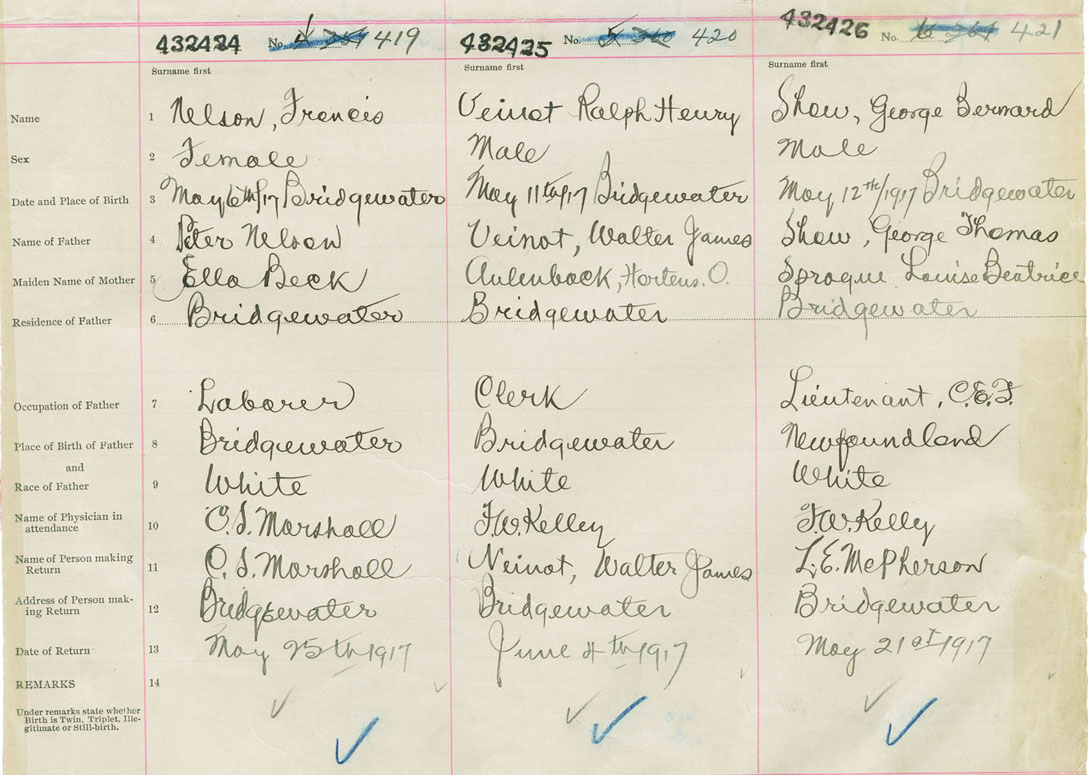 432424 No. 419 432425 No. 420 432426 No. 421
Surname first Surname first Surname first
Name 1 Nelson, Francis Veinot Ralph Henry Shaw, George Bernard
Sex 2 Female Male Male
Date and Place of Birth 3 May 6th/17 Bridgewater May 11th/17 Bridgewater May 12th/1917 Bridgewater
Name of Father 4 Peter Nelson Veinot, Walter James Shaw, George Thomas
Maiden Name of Mother 5 Ella Beck Aulenback, Hortens. O. Sprague Louise Beatrice
Residence of Father 6 Bridgewater Bridgewater Bridgewater
Occupation of Father 7 Laborer Clerk Lieutenant, C.E.F.
Place of Birth of Father 8 Bridgewater Bridgewater Newfoundland
and
Race of Father 9 White White White
Name of Physician in
attendance 10 C.S. Marshall F.W. Kelley F.W. Kelly
Name of Person making
Return 11 C.S. Marshall Veinot, Walter James L.E. McPherson
Address of Person mak-
ing Return 12 Bridgewater Bridgewater Bridgewater
Date of Return 13 May 25th 1917 June 4th 1917 May 21st 1917
REMARKS 14
Under remarks state whether
Birth is Twin, Triplet, Ille-
gitimate or Still-birth.